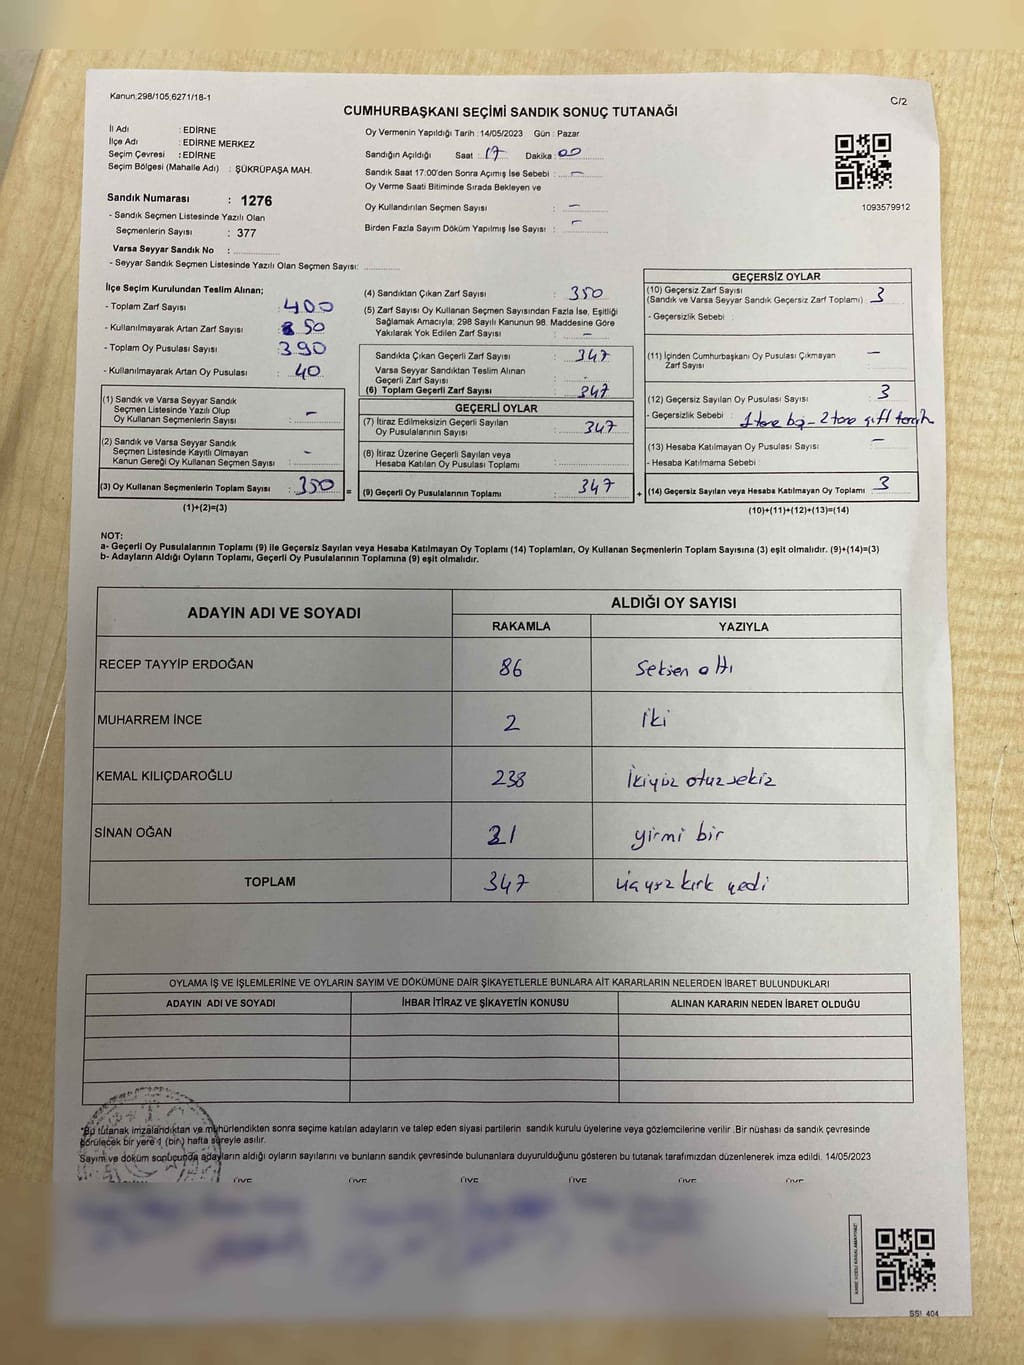 Kanun.298/105,6271/18-1
C/2
CUMHURBAŞKANI SEÇİMİ SANDIK SONUÇ TUTANAĞI
İl Adı : EDİRNE
İlçe Adı : EDİRNE MERKEZ
Seçim Çevresi : EDİRNE
Seçim Bölgesi (Mahalle Adı) : ŞÜKRÜPAŞA MAH.
Sandık Numarası : 1276
- Sandık Seçmen Listesinde Yazılı Olan
Seçmenlerin Sayısı : 377
Varsa Seyyar Sandık No :
- Seyyar Sandık Seçmen Listesinde Yazılı Olan Seçmen Sayısı:
Oy Vermenin Yapıldığı Tarih : 14/05/2023 Gün : Pazar
Sandığın Açıldığı Saat : 17 Dakika : 00
Sandık Saat 17:00'den Sonra Açımış İse Sebebi : -
Oy Verme Saati Bitiminde Sırada Bekleyen ve
Oy Kullandırılan Seçmen Sayısı : -
Birden Fazla Sayım Döküm Yapılmış İse Sayısı : -
1093579912
İlçe Seçim Kurulundan Teslim Alınan;
- Toplam Zarf Sayısı : 400
- Kullanılmayarak Artan Zarf Sayısı : 50
- Toplam Oy Pusulası Sayısı : 390
- Kullanılmayarak Artan Oy Pusulası : 40
(1) Sandık ve Varsa Seyyar Sandık
Seçmen Listesinde Yazılı Olup
Oy Kullanan Seçmenlerin Sayısı : -
(2) Sandık ve Varsa Seyyar Sandık
Seçmen Listesinde Kayıtlı Olmayan
Kanun Gereği Oy Kullanan Seçmen Sayısı : -
(3) Oy Kullanan Seçmenlerin Toplam Sayısı : 350 =
(1)+(2)=(3)
(4) Sandıktan Çıkan Zarf Sayısı : 350
(5) Zarf Sayısı Oy Kullanan Seçmen Sayısından Fazla İse, Eşitliği
Sağlamak Amacıyla; 298 Sayılı Kanunun 98. Maddesine Göre
Yakılarak Yok Edilen Zarf Sayısı : -
Sandıkta Çıkan Geçerli Zarf Sayısı : 347
Varsa Seyyar Sandıktan Teslim Alınan
Geçerli Zarf Sayısı : -
(6) Toplam Geçerli Zarf Sayısı : 347
GEÇERLİ OYLAR
(7) İtiraz Edilmeksizin Geçerli Sayılan
Oy Pusulalarının Sayısı : 347
(8) İtiraz Üzerine Geçerli Sayılan veya
Hesaba Katılan Oy Pusulası Toplamı :
(9) Geçerli Oy Pusulalarının Toplamı : 347 +
GEÇERSİZ OYLAR
(10) Geçersiz Zarf Sayısı
(Sandık ve Varsa Seyyar Sandık Geçersiz Zarf Toplamı) : 3
- Geçersizlik Sebebi :
(11) İçinden Cumhurbaşkanı Oy Pusulası Çıkmayan
Zarf Sayısı : -
(12) Geçersiz Sayılan Oy Pusulası Sayısı : 3
- Geçersizlik Sebebi : 1 tane boş - 2 tane çift tercih
(13) Hesaba Katılmayan Oy Pusulası Sayısı : -
- Hesaba Katılmama Sebebi :
(14) Geçersiz Sayılan veya Hesaba Katılmayan Oy Toplamı : 3
(10)+(11)+(12)+(13)=(14)
NOT:
a- Geçerli Oy Pusulalarının Toplamı (9) ile Geçersiz Sayılan veya Hesaba Katılmayan Oy Toplamı (14) Toplamları, Oy Kullanan Seçmenlerin Toplam Sayısına (3) eşit olmalıdır. (9)+(14)=(3)
b- Adayların Aldığı Oyların Toplamı, Geçerli Oy Pusulalarının Toplamına (9) eşit olmalıdır.
ADAYIN ADI VE SOYADI ALDIĞI OY SAYISI
RAKAMLA YAZIYLA
RECEP TAYYİP ERDOĞAN 86 Seksen altı
MUHARREM İNCE 2 İki
KEMAL KILIÇDAROĞLU 238 İkiyüz otuzsekiz
SİNAN OĞAN 21 yirmi bir
TOPLAM 347 üçyüz kırk yedi
OYLAMA İŞ VE İŞLEMLERİNE VE OYLARIN SAYIM VE DÖKÜMÜNE DAİR ŞİKAYETLERLE BUNLARA AİT KARARLARIN NELERDEN İBARET BULUNDUKLARI
ADAYIN ADI VE SOYADI İHBAR İTİRAZ VE ŞİKAYETİN KONUSU ALINAN KARARIN NEDEN İBARET OLDUĞU
*Bu tutanak imzalandıktan ve mühürlendikten sonra seçime katılan adayların ve talep eden siyasi partilerin sandık kurulu üyelerine veya gözlemcilerine verilir .Bir nüshası da sandık çevresinde
görülecek bir yere 1 (bir) hafta süreyle asılır.
Sayım ve döküm sonucunda adayların aldığı oyların sayılarını ve bunların sandık çevresinde bulunanlara duyurulduğunu gösteren bu tutanak tarafımızdan düzenlenerek imza edildi. 14/05/2023
ÜYE ÜYE ÜYE ÜYE ÜYE ÜYE
SSI_404